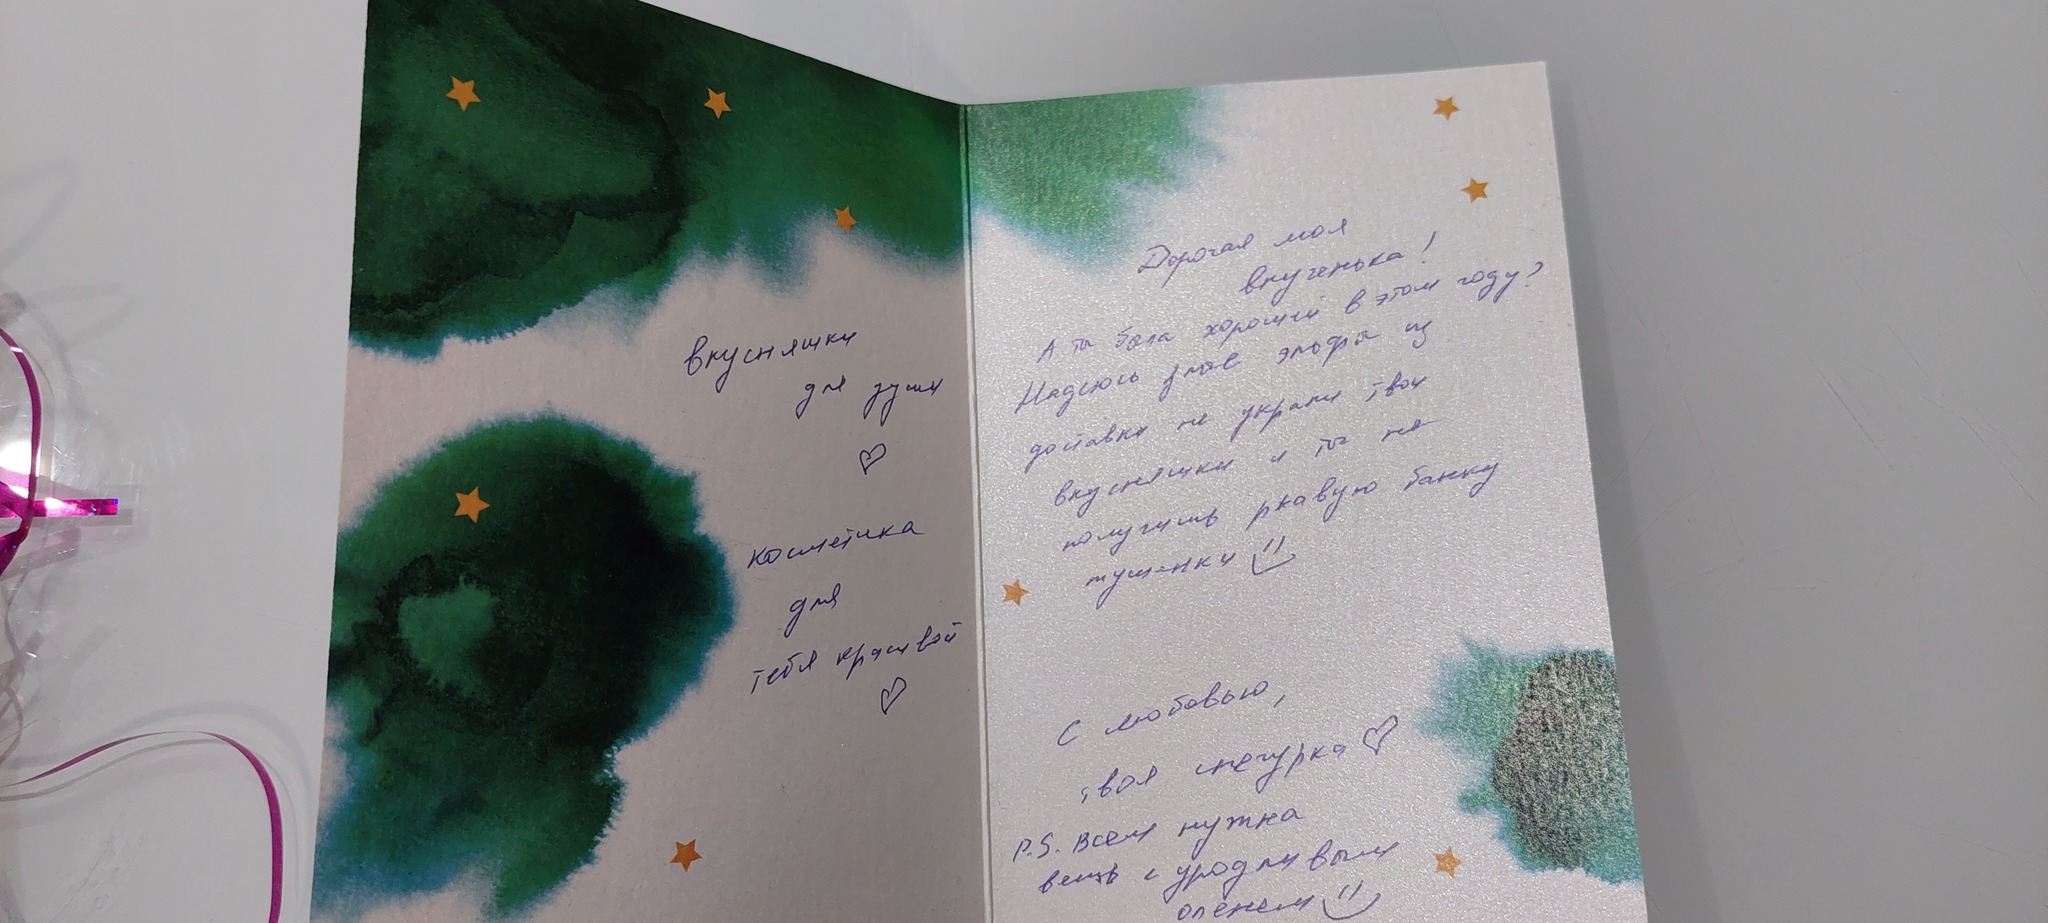 вкусняшки
для души
косметика
для
тебя красивой
Дорогая моя
внученька!
А ты была хорошей в этом году?
Надеюсь злые эльфы из
доставки не украли твои
вкусняшки и ты не
получишь ржавую банку
тушенки
С любовью,
твоя снегурка
P.S. Всем нужна
вещь с уродливым
оленем